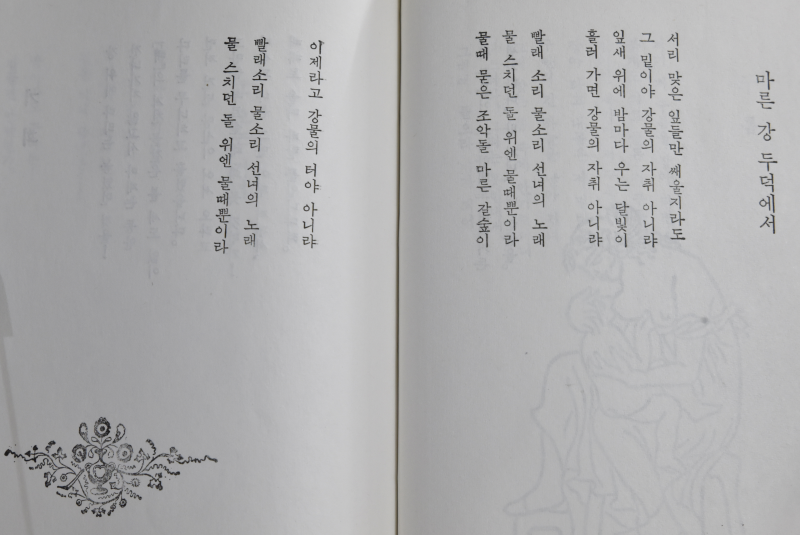 마른 강 두덕에서
서리 맞은 잎들만 쌔울지라도
그 밑이야 강물의 자취 아니랴
잎새 위에 밤마다 우는 달빛이
흘러 가면 강물의 자취 아니랴
빨래 소리 물소리 선녀의 노래
물 스치던 돌 위엔 물때뿐이라
물때 묻은 조악돌 마른 갈숲이
이제라고 강물의 터야 아니랴
빨래 소리 물소리 선녀의 노래
물 스치던 돌 위엔 물때뿐이라